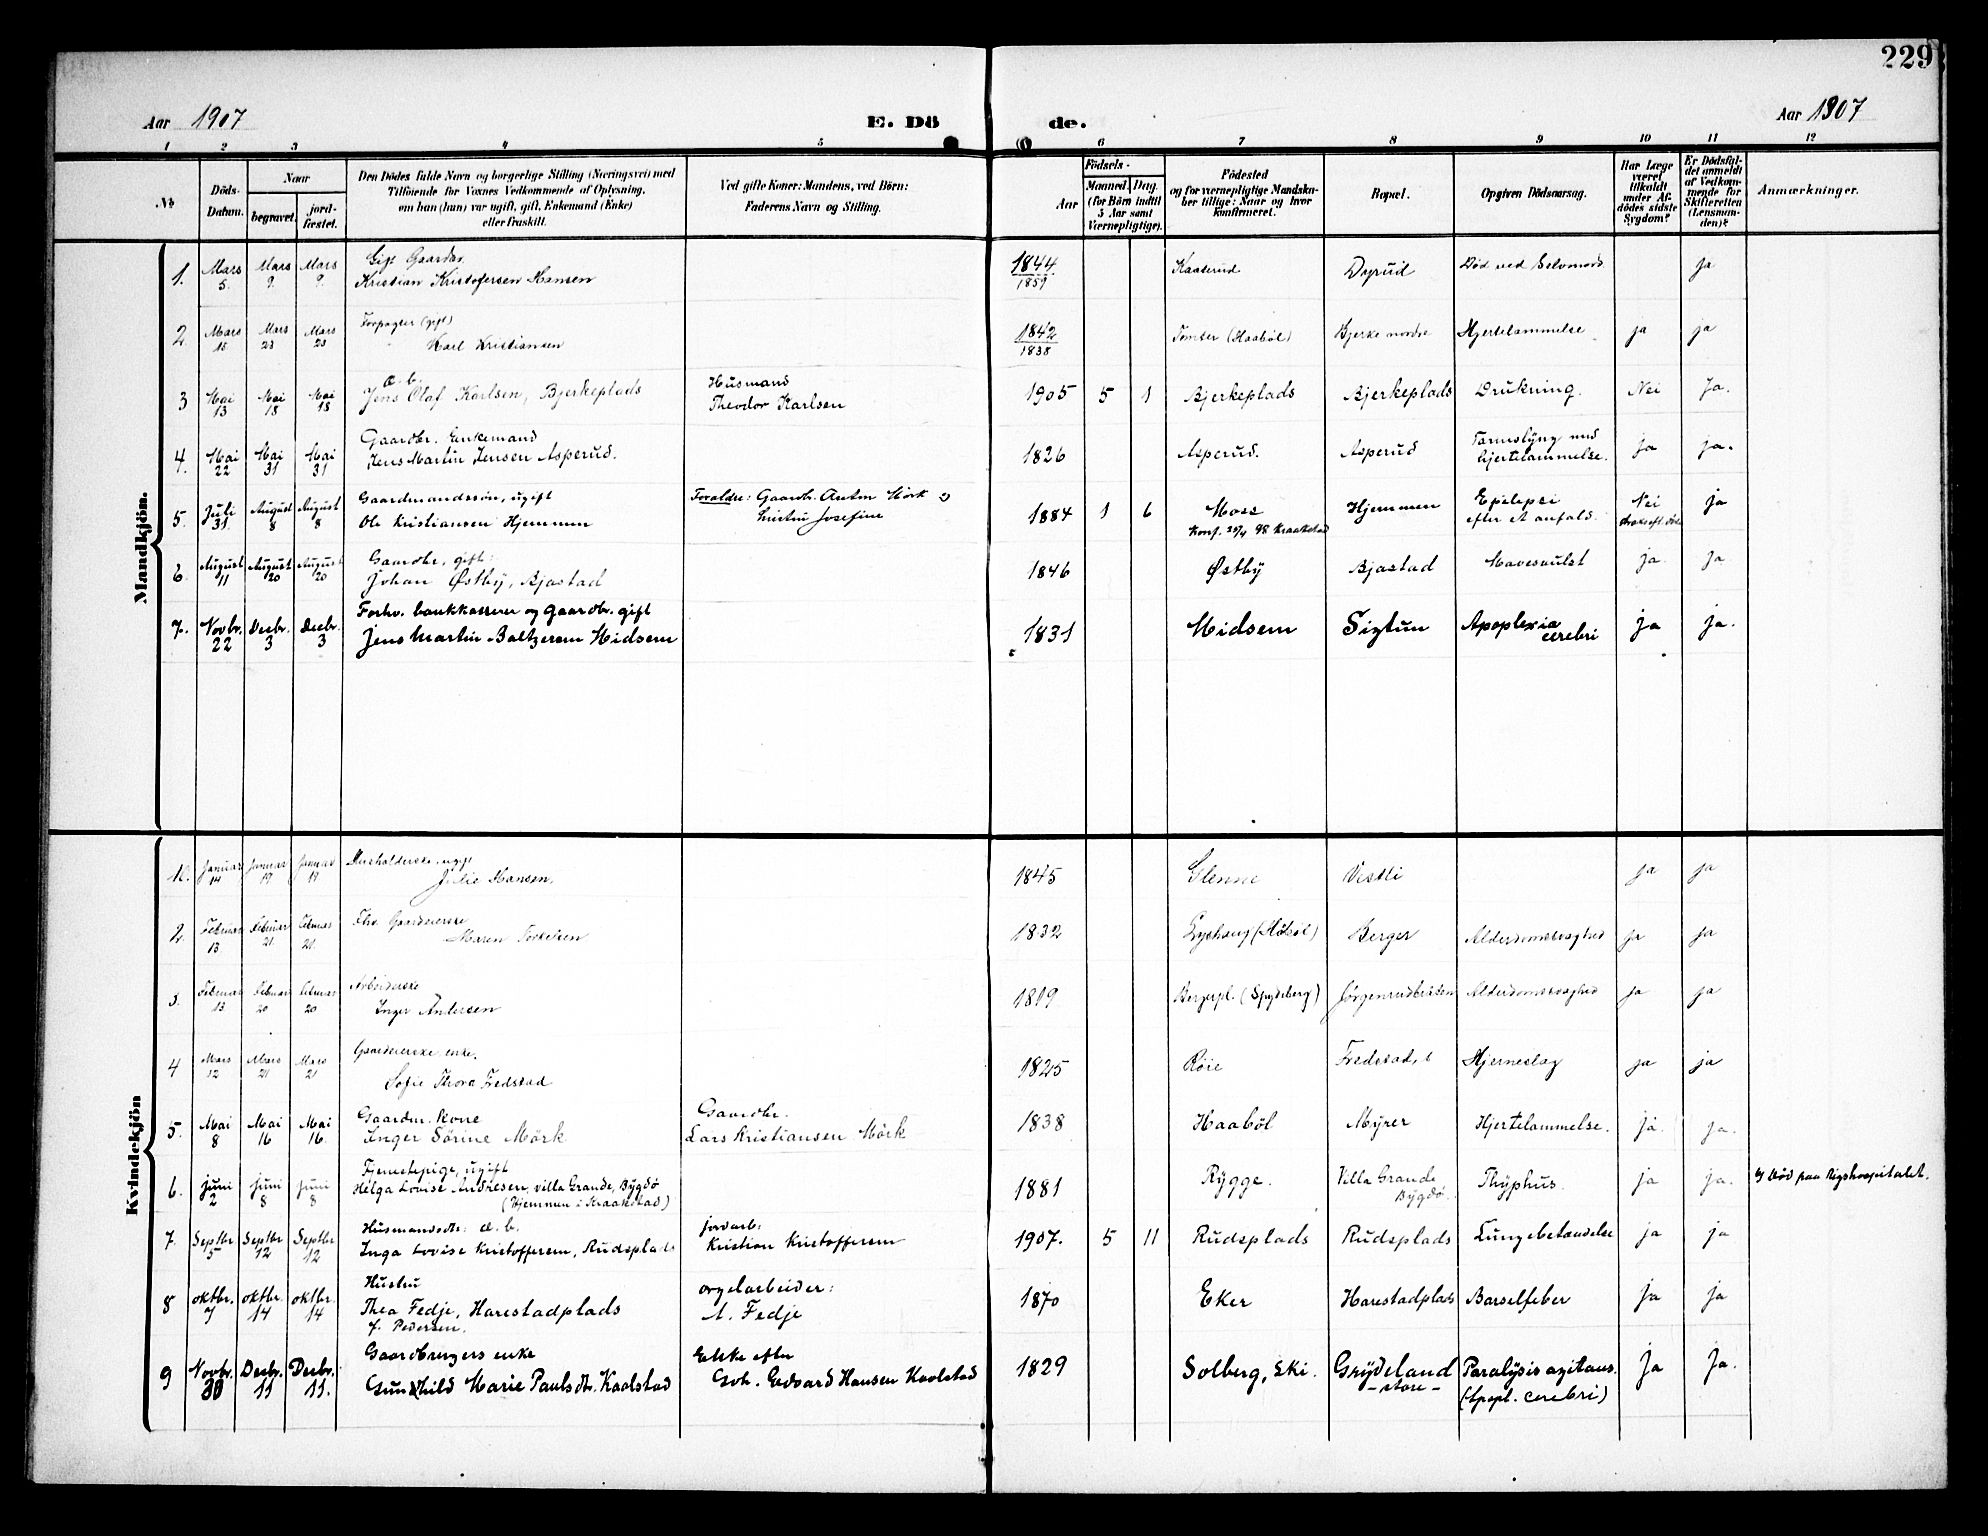 229
Aar 1907
E. Dö
de.
Aar 1907
1 2 3 4 5 6 7 8 9 10 11 12
No
Döds-Datum.
Naar
begravet.
jord-fæstet.
Den Dödes fulde Navn og borgerlige Stilling (Næringsvei) med
Tilföiende for Voxnes Vedkommende af Oplysning,
om han (hun) var ugift, gift, Enkemand (Enke)
eller fraskilt.
Ved gifte Koner: Mandens, ved Börn:
Faderens Navn og Stilling.
Födsels-
Aar
Maaned. Dag.
(for Börn indtil
5 Aar samt
Værnepligtige).
Födested
og for værnepligtige Mandska-
ber tillige: Naar og hvor
konfirmeret.
Bopæl.
Opgiven Dödsaarsag.
Har Læge
været
tilkaldt
under Af-
dödes sidste
Sygdom?
Er Dödsfal-
det anmeldt
af Vedkom-
mende for
Skifteretten
(Lensman-
den)?
Anmærkninger.
Mandkjön.
1. Mars 5. Mars 9. Mars 9. Gift Gaardbr.
Kristian Kristofersen Hansen 1844 1859 Kaaterud Dyrud Død ved Selvmord ja
2 Mars 15 Mars 23 Mars 23 Forpagter (gift)
Karl Kristiansen 1842 1838 Tomter (Haabøl) Bjerke nordre Hjertelammelse ja ja
3 Mai 13 Mai 18 Mai 18 æ. b.
Jens Olaf Karlsen, Bjerkeplads Husmand
Theodor Karlsen 1905 5 1 Bjerkeplads Bjerkeplads Drukning. Nei Ja.
4. Mai 22 Mai 31 Mai 31 Gaardbr. Enkemand
Jens Martin Jensen Asperud. 1826 Asperud. Asperud Tarmslyng med
hjertelammelse. ja ja.
5. Juli 31 August 8 August 8 Gaardmandssøn, ugift
Ole Kristiansen Hjemmen Forældre: Gaardb. Anton Mörk og
Kristin Josefine 1884 1 6 Moss
Konf. 98 Kraakstad Hjemmen Epilepsi
efter et anfald. Nei ja
6. August 11 August 20 August 20 Gaardbr, gift:
Johan Østby, Bjastad 1846 Østby Bjastad Mavesvulst ja. ja
7. Novbr. 22 Desbr. 3 Desbr. 3 Forhv. bankkasserer og Gaardbr. gift
Jens Martin Baltzersen Midsem 1831 Midsem Sigtun Apoplexia
cerebri ja ja.
Kvindekjön
1. Januar 14 Januar 19 Januar 19 Husholderske, ugift
Julie Hansen. 1845 Glenne Vestli ja ja
2. Februar 13 Februar 21. Februar 21. Fhv. Gaardeierske
Maren Torkelsen 1832 (Høbøl) Berger Alderdomssvaghed ja ja
3. Februar 13 Februar 20 Februar 20 Arbeiderske
Inger Andersen 1819 Bergerpl. (Spydeberg) Jörgenrudbråten Alderdomssvaghed ja ja
4 Mars 12 Mars 21 Mars 21 Gaardeierske enke.
Sofie Thora Fredstad 1825 Røie Fredstad, Hjerneslag ja ja
5. Mai 8 Mai 16 Mai 16. Gaardm. kone
Inger Sörine Mörk Gaardbr.
Lars Kristiansen Mörk 1838 Haaböl Myrer Hjertelammelse. ja. ja.
6. juni 2 juni 8 juni 8 Tjenestepige, ugift
Helga Lovise Andresen, villa Grande, Bygdö
(Hjemmen i Kraakstad) 1881 Rygge. Villa Grande
Bygdö. Thyphus. ja ja. Död paa Rigshospitalet.
7. Septbr 5 Septbr 12 Septbr 12 Husmandsdtr: æ. b.
Inga Lovise Kristoffersen, Rudsplads jordarb:
Kristian Kristoffersen 1907. 5 11 Rudsplads Rudsplads Lungebetændelse ja ja
8 oktbr. 7 oktbr. 14 oktbr. 14 Hustru
Thea Fedje, Harestadplads
f. Pedersen. orgelarbeider:
A. Fedje 1870 Eker Harestadplads Barselfeber ja ja
9 Novbr. 30 Desbr. 11 Desbr. 11. Gaardbrugers enke
Gunhild Marie Paulsdtr. Kaalstad Enke efter
Joh. Edvard Hansen Kaalstad 1829 Solberg, Ski. Gryteland
- store - Paralysis agitans.
(Apopl. cerebri) Ja Ja.